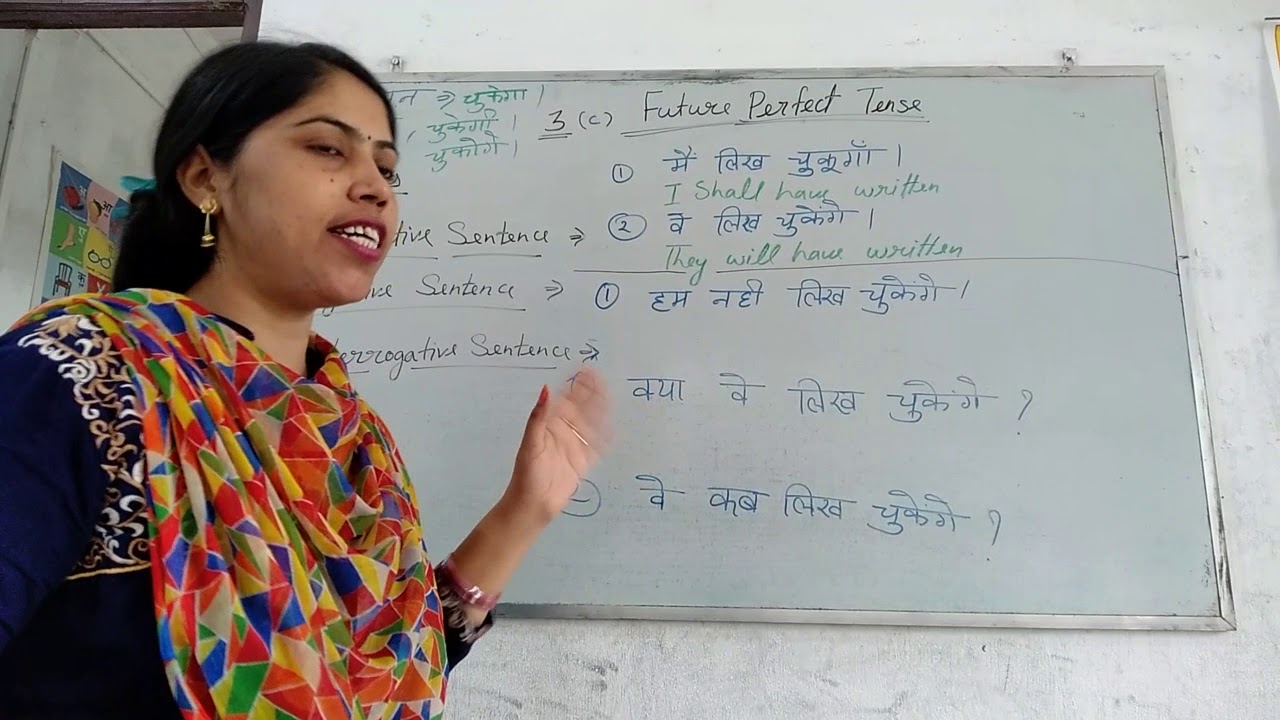 चुकेगा ।
चुकेगी ।
चुकोगे ।
3 (c) Future Perfect Tense
① मैं लिख चुकूगाँ ।
I Shall have written
Sentence ⇒ ② वे लिख चुकेंगे ।
They will have written
Sentence ⇒ ① हम नही लिख चुकेंगे ।
Sentence ⇒
क्या वे लिख चुकेंगे ?
वे कब लिख चुकेंगे ?